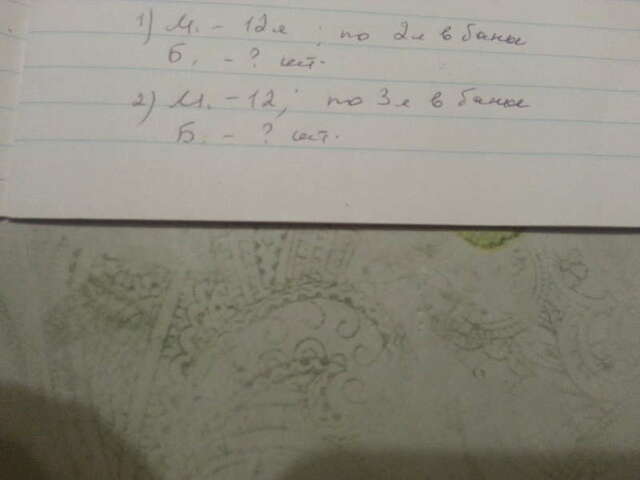 1) М. - 12л ; по 2л в баны
Б. - ? шт.
2) М. - 12 ; по 3л в баны
Б. - ? шт.